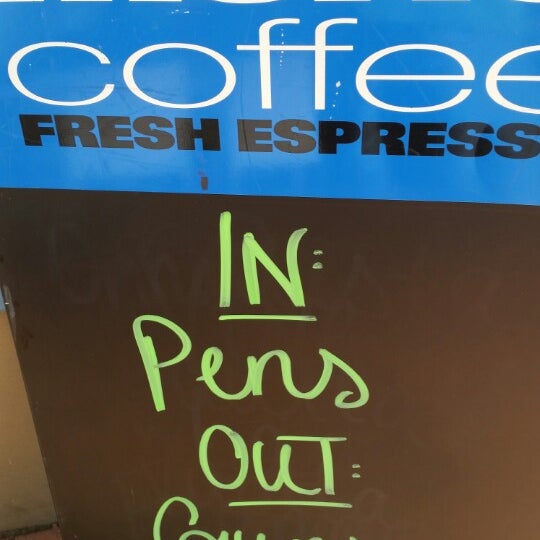 coffee
FRESH ESPRESS
IN:
Pens
OUT: